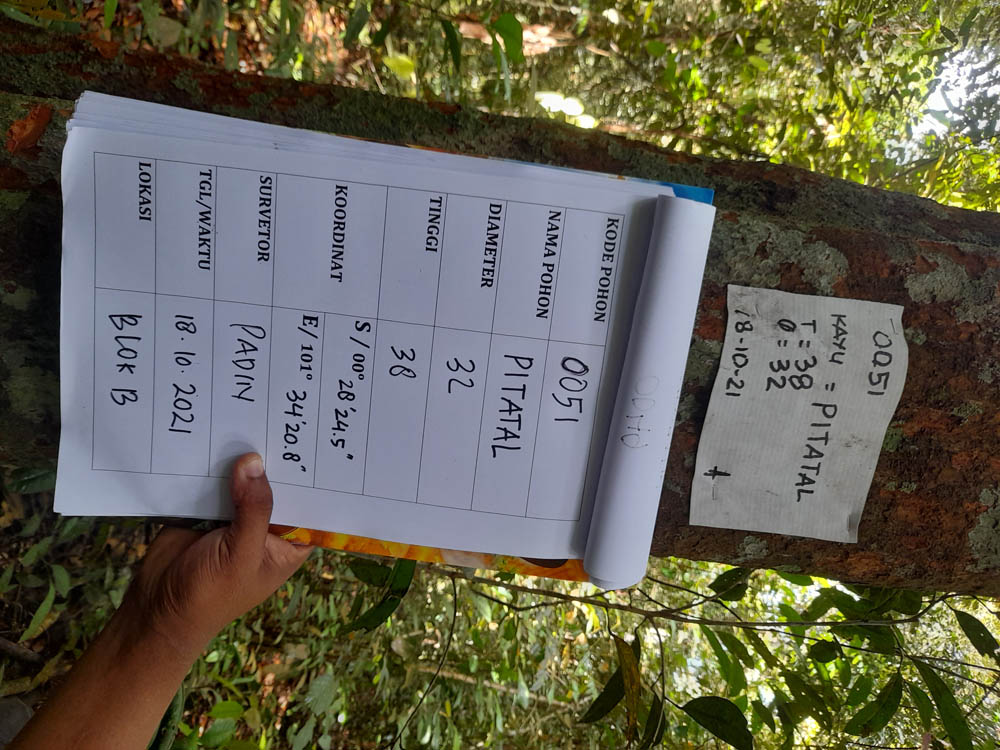 0051
KAYU = PITATAL
T = 38
Ø = 32
18-10-21
KODE POHON 0051
NAMA POHON PITATAL
DIAMETER 32
TINGGI 38
KOORDINAT S / 00° 28'24.5"
E/ 101° 34'20.8"
SURVETOR PADIN
TGL/WAKTU 18.10.2021
LOKASI BLOK B